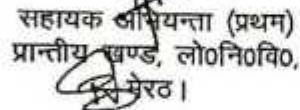 सहायक अभियन्ता (प्रथम)
प्रान्तीय खण्ड, लो०नि०वि०,
मेरठ।